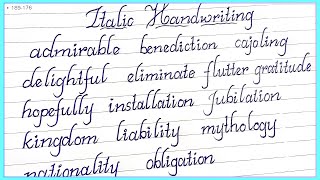 189-176
Italic Handwriting
admirable benediction cajoling
delightful eliminate flutter gratitude
hopefully installation Jubilation
kingdom liability mythology
nationality obligation